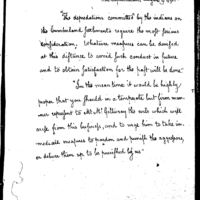 "The depredations committed by the indians on
the Cumberland settlements require the most serious
consideration. Whatever measures can be devised
at this distance to avoid such conduct in future
and to obtain satisfaction for the past will be done."
"In the mean time it would be highly
proper that you should in a temperate but firm man-
ner represent to Mr. McGillivray the evils which will
arise from this business, and to urge him to take im-
mediate measures to pardon and punish the aggressors,
or deliver them up to be punished by us"